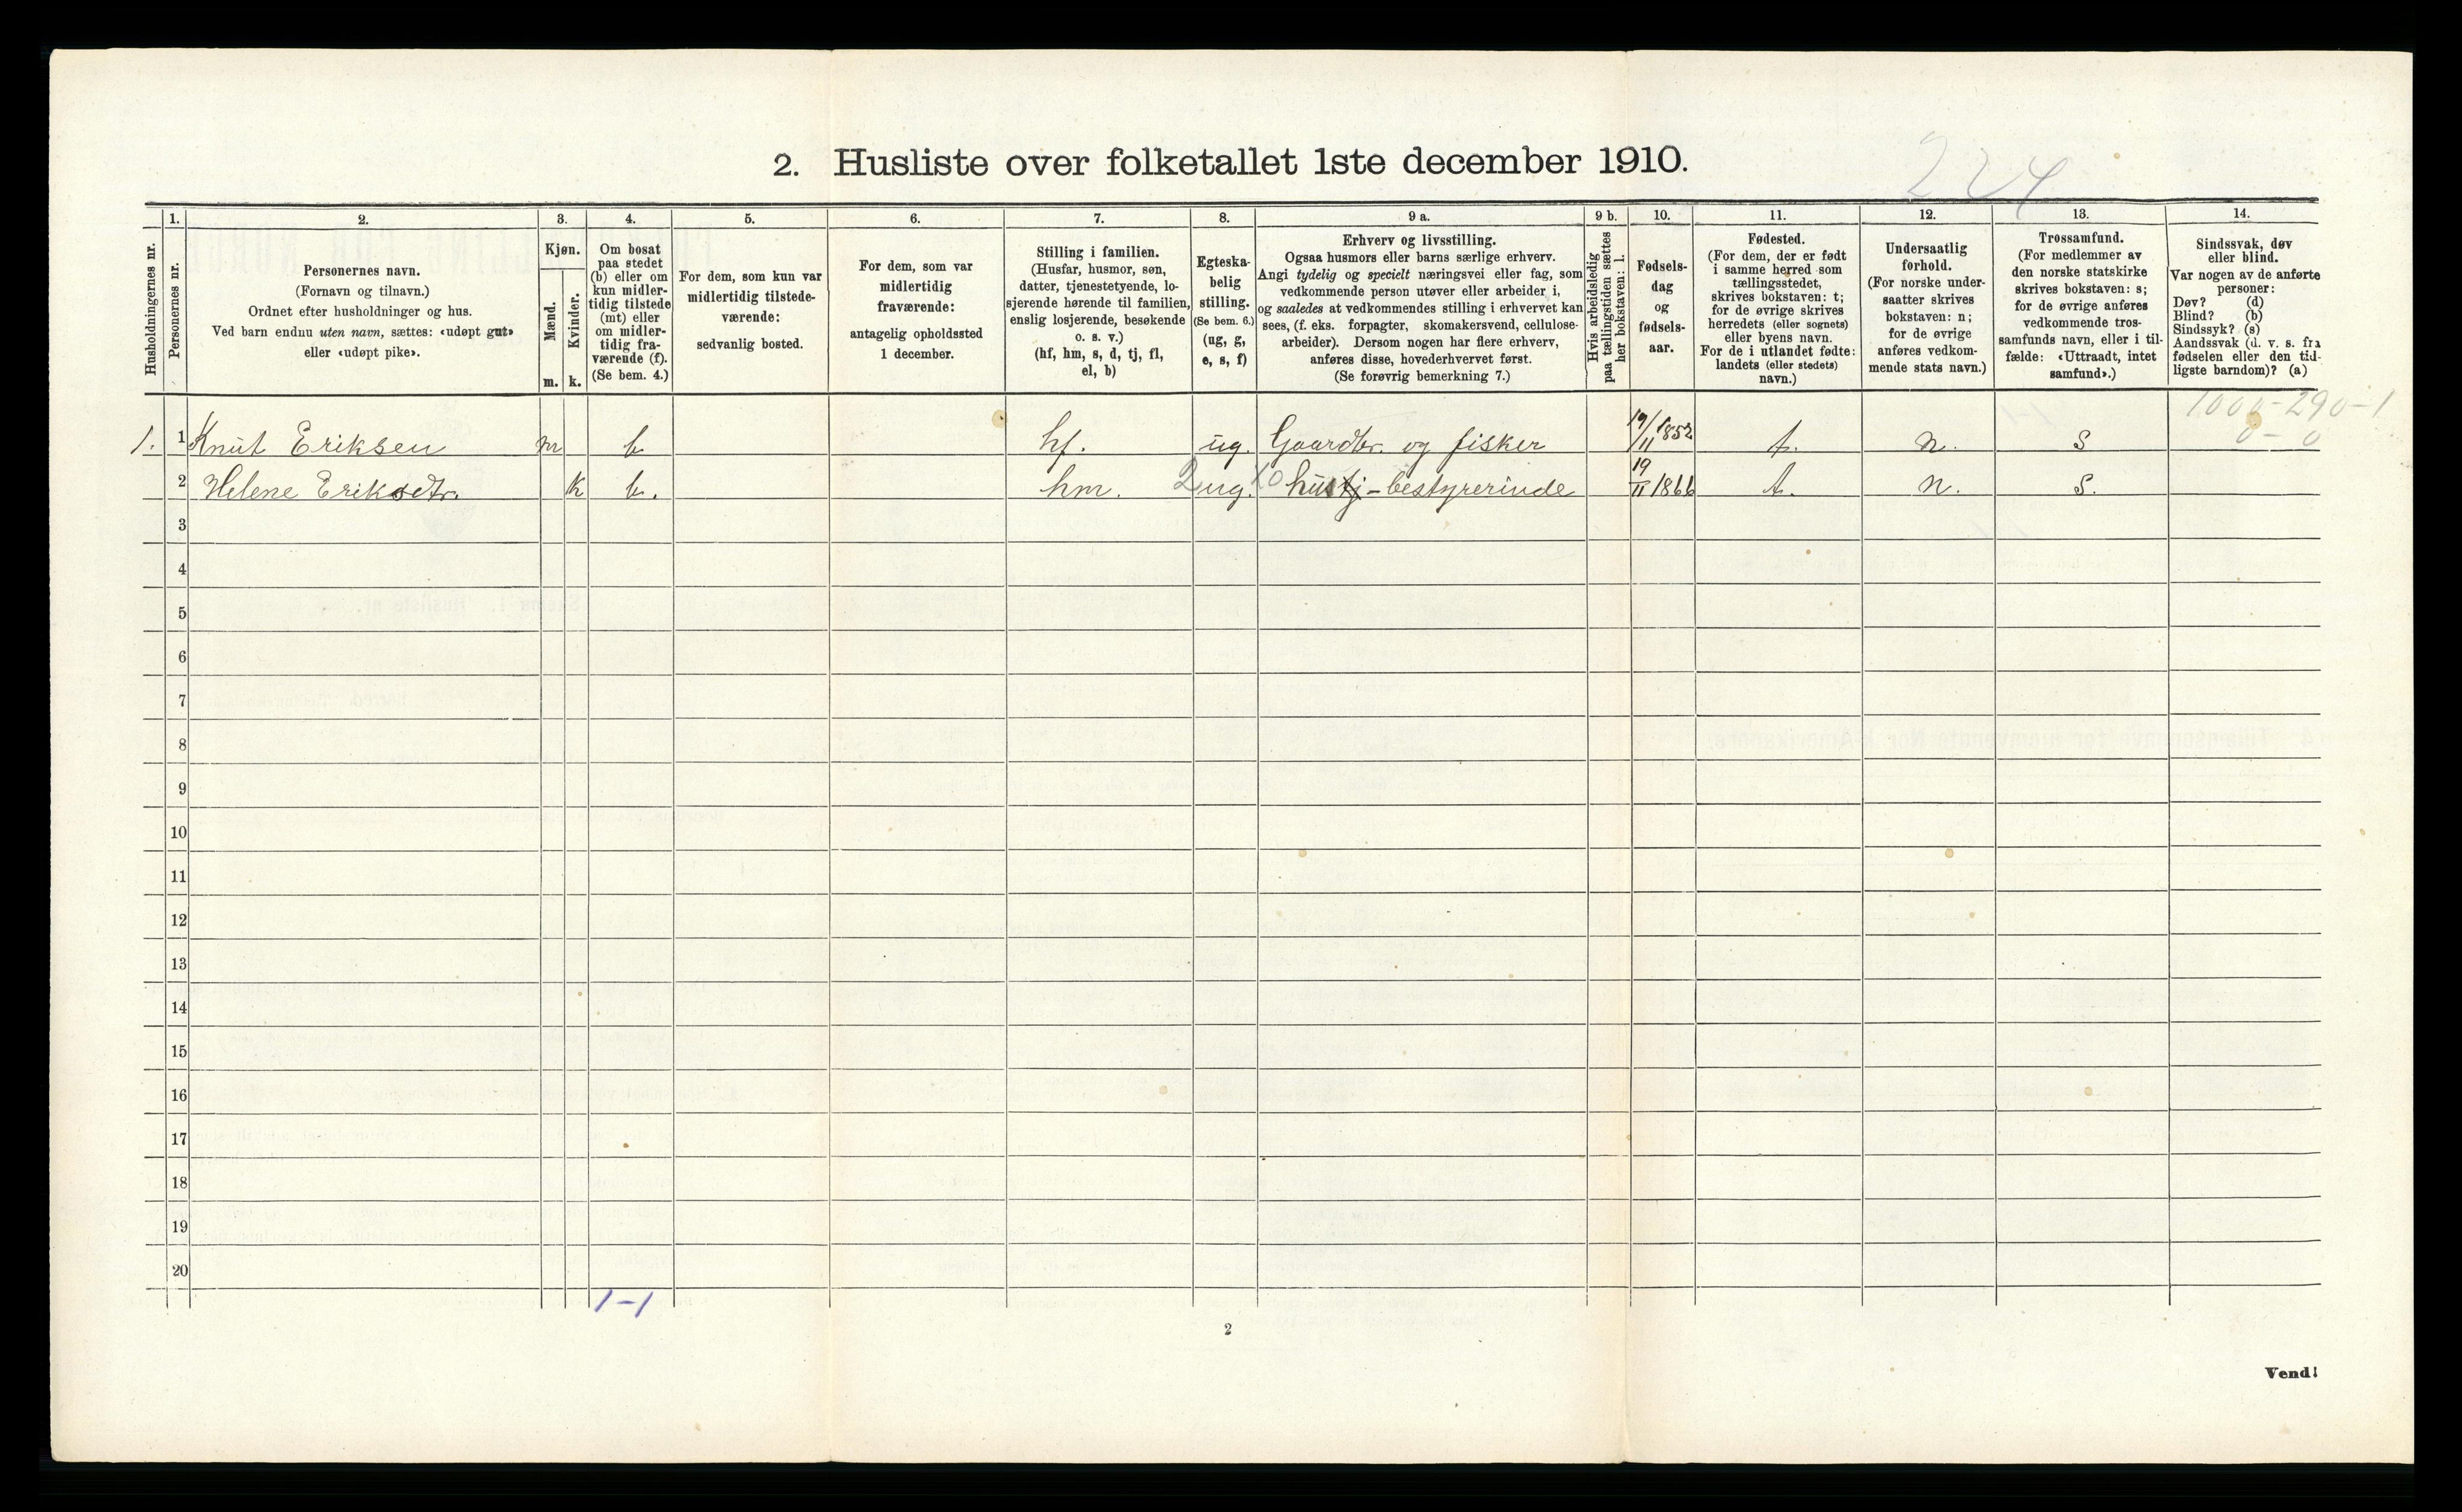 2. Husliste over folketallet 1ste december 1910.
224
Husholdningernes nr.
1.
Personernes nr.
2.
Personernes navn.
(Fornavn og tilnavn.)
Ordnet efter husholdninger og hus.
Ved barn endnu uten navn, sættes: «udøpt gut»
eller «udøpt pike».
3.
Kjøn.
Mænd.
m.
Kvinder.
k.
4.
Om bosat
paa stedet
(b) eller om
kun midler-
tidig tilstede
(mt) eller
om midler-
tidig fra-
værende (f).
(Se bem. 4.)
5.
For dem, som kun var
midlertidig tilstede-
værende:
sedvanlig bosted.
6.
For dem, som var
midlertidig
fraværende:
antagelig opholdssted
1 december.
7.
Stilling i familien.
(Husfar, husmor, søn,
datter, tjenestetyende, lo-
sjerende hørende til familien,
enslig losjerende, besøkende
o. s. v.)
(hf, hm, s, d, tj, fl,
el, b)
8.
Egteska-
belig
stilling.
(Se bem. 6.)
(ug, g,
e, s, f)
9 a.
Erhverv og livsstilling.
Ogsaa husmors eller barns særlige erhverv.
Angi tydelig og specielt næringsvei eller fag, som
vedkommende person utøver eller arbeider i,
og saaledes at vedkommendes stilling i erhvervet kan
sees, (f. eks. forpagter, skomakersvend, cellulose-
arbeider). Dersom nogen har flere erhverv,
anføres disse, hovederhvervet først.
(Se forøvrig bemerkning 7.)
9 b.
Hvis arbeidsledig
paa tællingstiden sættes
her bokstaven: l.
10.
Fødsels-
dag
og
fødsels-
aar.
11.
Fødested.
(For dem, der er født
i samme herred som
tællingsstedet,
skrives bokstaven: t;
for de øvrige skrives
herredets (eller sognets)
eller byens navn.
For de i utlandet fødte:
landets (eller stedets)
navn.)
12.
Undersaatlig
forhold.
(For norske under-
saatter skrives
bokstaven: n;
for de øvrige
anføres vedkom-
mende stats navn.)
13.
Trossamfund.
(For medlemmer av
den norske statskirke
skrives bokstaven: s;
for de øvrige anføres
vedkommende tros-
samfunds navn, eller i til-
fælde: «Uttraadt, intet
samfund».)
14.
Sindssvak, døv
eller blind.
Var nogen av de anførte
personer:
Døv? (d)
Blind? (b)
Sindssyk? (s)
Aandssvak (d. v. s. fra
fødselen eller den tid-
ligste barndom)? (a)
1000-290-1
0-0
1. 1 Knut Eriksen m b hf. ug. Gaardbr. og fisker 19/11 1852 t. n. s
2 Helene Eriksdtr. k b. hm. 2 ug. 10 hustj-bestyrerinde 19/11 1866 t. n. s.
3
4
5
6
7
8
9
10
11
12
13
14
15
16
17
18
19
20
1-1
2
Vend!